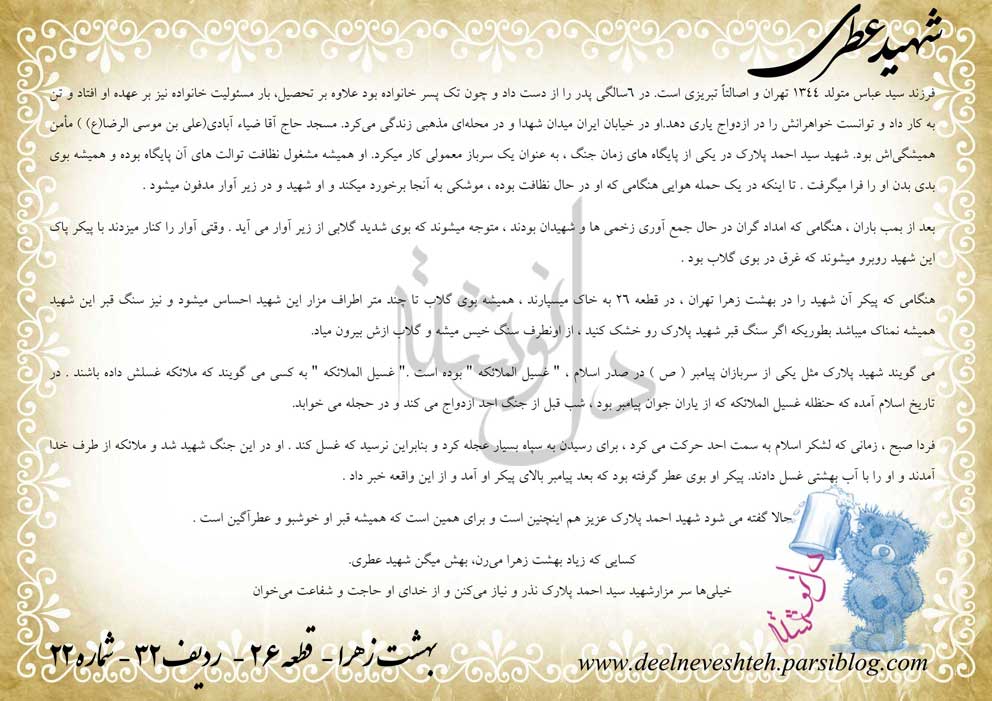 شهید عطری
فرزند سید عباس متولد ١٣٤٤ تهران و اصالتاً تبریزی است. در ٦سالگی پدر را از دست داد و چون تک پسر خانواده بود علاوه بر تحصیل، بار مسئولیت خانواده نیز بر عهده او افتاد و تن
به کار داد و توانست خواهرانش را در ازدواج یاری دهد.او در خیابان ایران میدان شهدا و در محله‌ای مذهبی زندگی می‌کرد. مسجد حاج آقا ضیاء آبادی(علی بن موسی الرضا(ع) ) مأمن
همیشگی‌اش بود. شهید سید احمد پلارک در یکی از پایگاه های زمان جنگ ، به عنوان یک سرباز معمولی کار میکرد. او همیشه مشغول نظافت توالت های آن پایگاه بوده و همیشه بوی
بدی بدن او را فرا میگرفت . تا اینکه در یک حمله هوایی هنگامی که او در حال نظافت بوده ، موشکی به آنجا برخورد میکند و او شهید و در زیر آوار مدفون میشود .
بعد از بمب باران ، هنگامی که امداد گران در حال جمع آوری زخمی ها و شهیدان بودند ، متوجه میشوند که بوی شدید گلابی از زیر آوار می آید . وقتی آوار را کنار میزدند با پیکر پاک
این شهید روبرو میشوند که غرق در بوی گلاب بود .
هنگامی که پیکر آن شهید را در بهشت زهرا تهران ، در قطعه ٢٦ به خاک میسپارند ، همیشه بوی گلاب تا چند متر اطراف مزار این شهید احساس میشود و نیز سنگ قبر این شهید
همیشه نمناک میباشد بطوریکه اگر سنگ قبر شهید پلارک رو خشک کنید ، از اونطرف سنگ خیس میشه و گلاب ازش بیرون میاد.
می گویند شهید پلارک مثل یکی از سربازان پیامبر ( ص ) در صدر اسلام ، " غسیل الملائکه " بوده است ." غسیل الملائکه " به کسی می گویند که ملائکه غسلش داده باشند . در
تاریخ اسلام آمده که حنظله غسیل الملائکه که از یاران جوان پیامبر بود ، شب قبل از جنگ احد ازدواج می کند و در حجله می خوابد.
فردا صبح ، زمانی که لشکر اسلام به سمت احد حرکت می کرد ، برای رسیدن به سپاه بسیار عجله کرد و بنابراین نرسید که غسل کند . او در این جنگ شهید شد و ملائکه از طرف خدا
آمدند و او را با آب بهشتی غسل دادند. پیکر او بوی عطر گرفته بود که بعد پیامبر بالای پیکر او آمد و از این واقعه خبر داد .
حالا گفته می شود شهید احمد پلارک عزیز هم اینچنین است و برای همین است که همیشه قبر او خوشبو و عطرآگین است .
کسایی که زیاد بهشت زهرا می‌رن، بهش میگن شهید عطری.
خیلی‌ها سر مزارشهید سید احمد پلارک نذر و نیاز می‌کنن و از خدای او حاجت و شفاعت می‌خوان
دل نوشته
دل نوشته
بهشت زهرا - قطعه ٢٦ - ردیف ٣٢ - شماره ٢٢
www.deelneveshteh.parsiblog.com